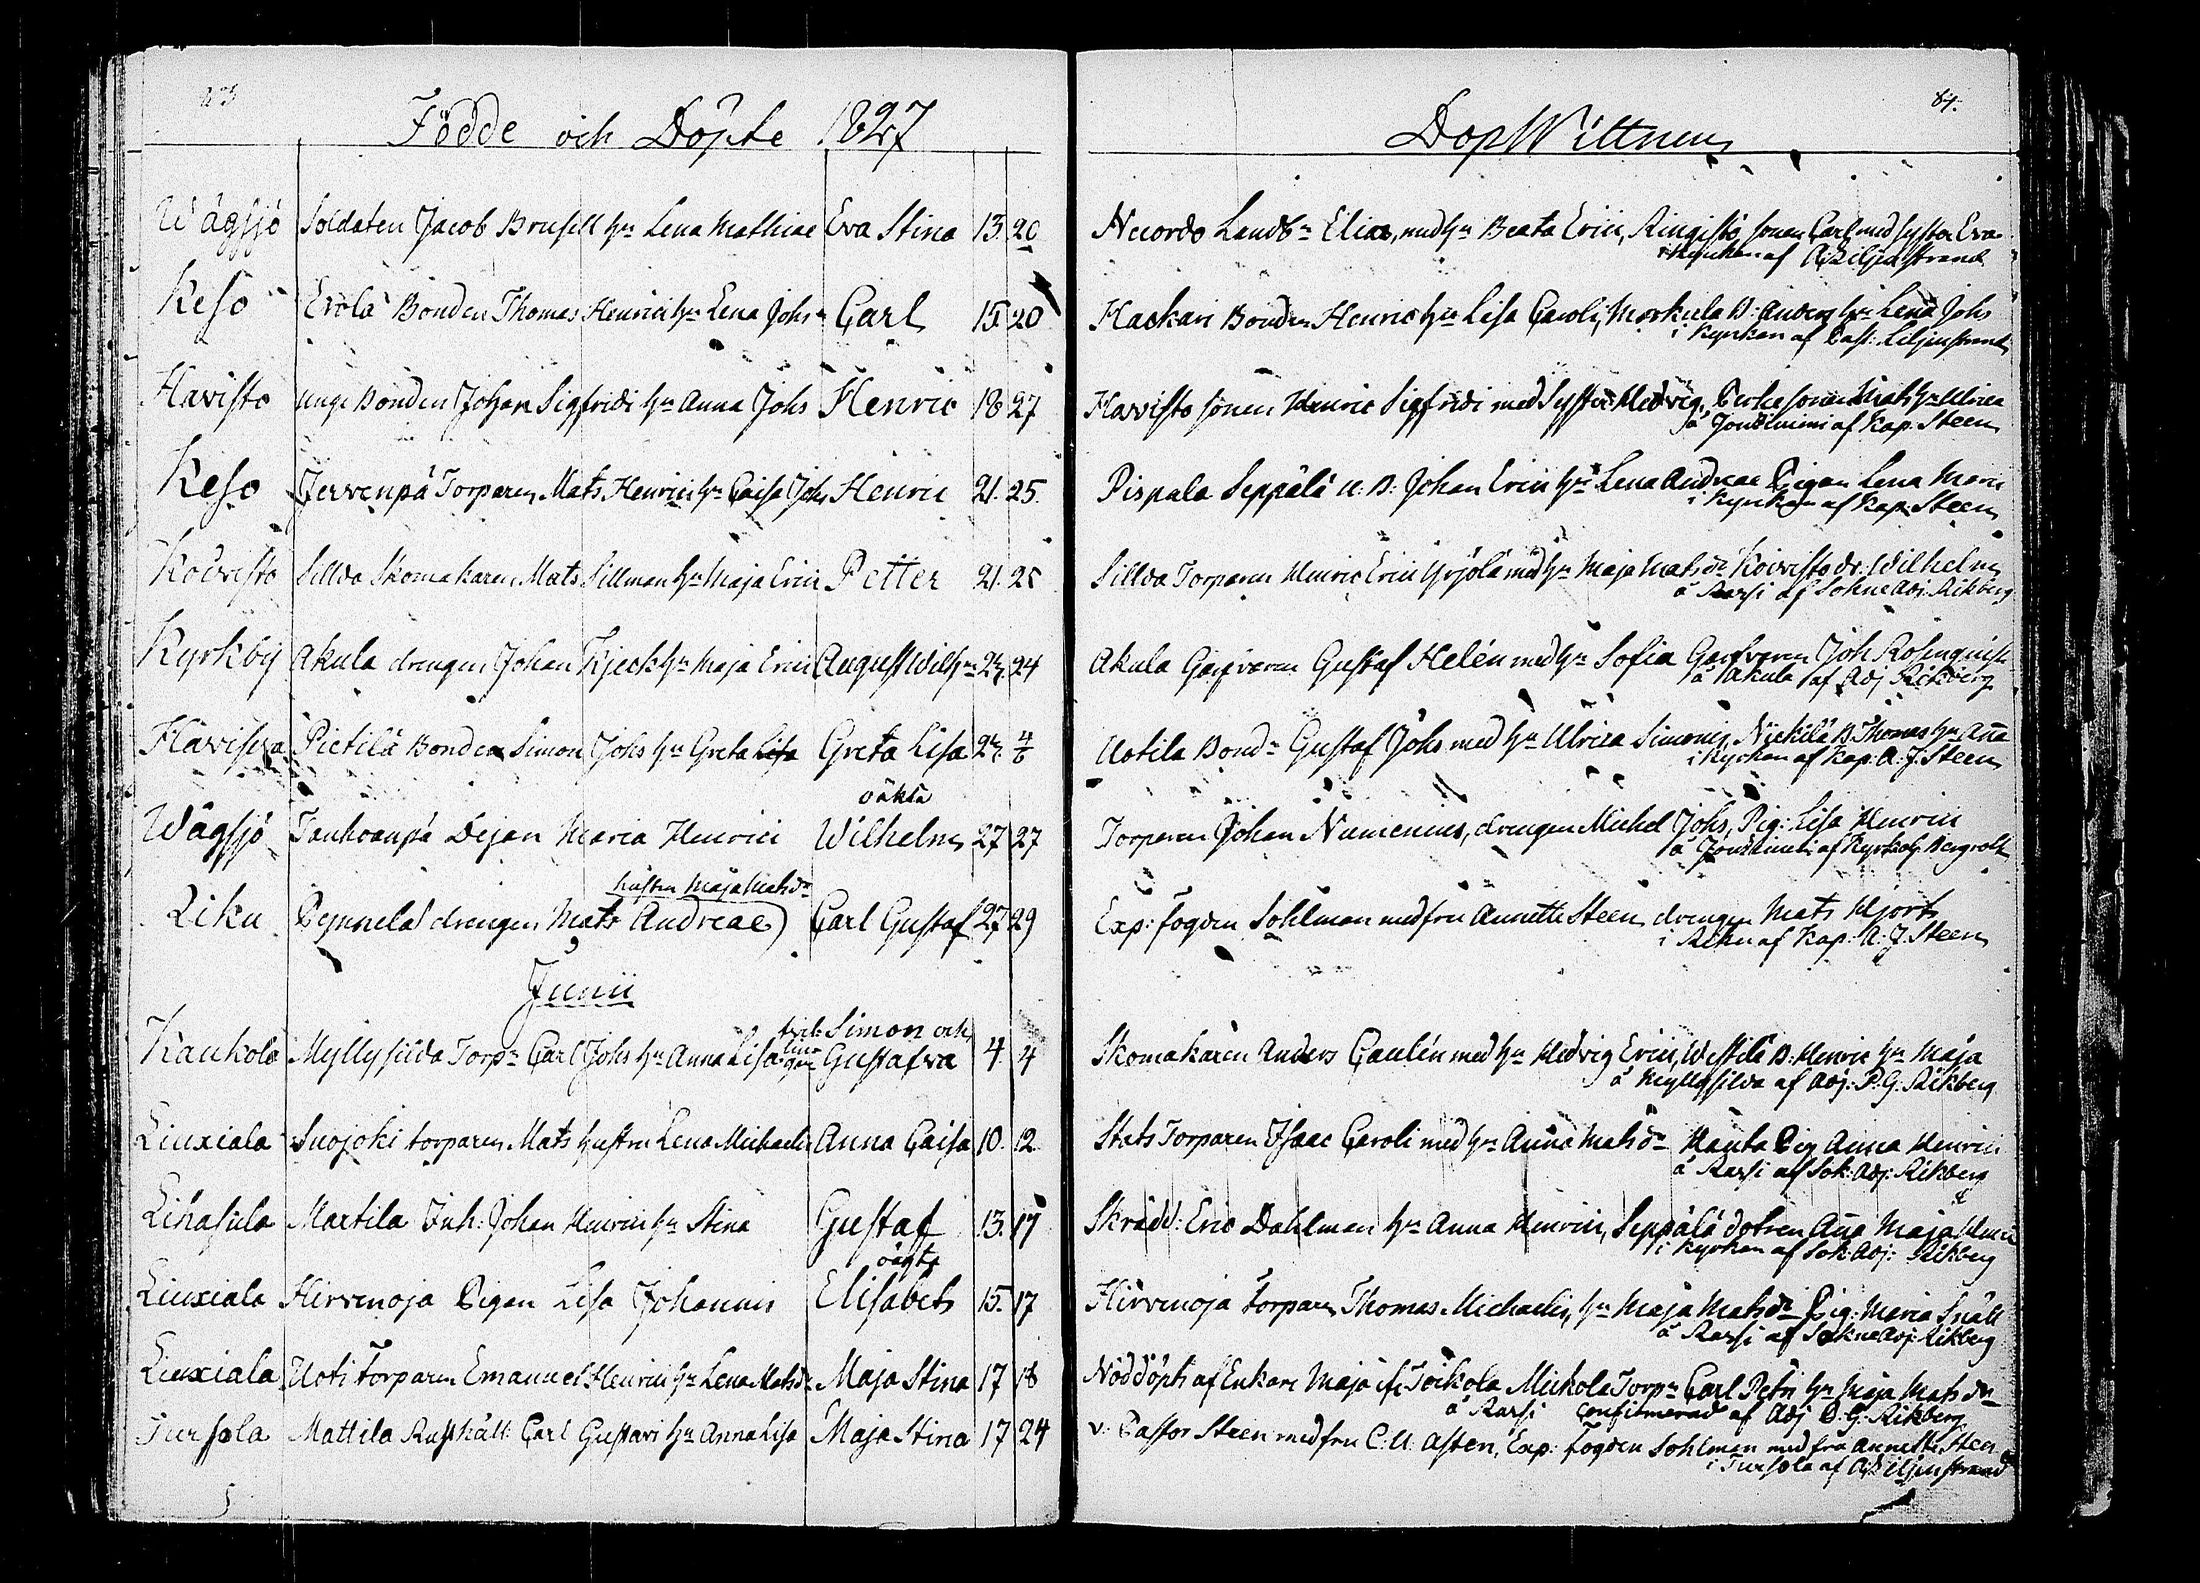 Födde och Döpte 1827
Wågsjö Soldaten Jacob Brusell hu Lena Mathiae Eva Stina 13 20
Keso Erola Bonden Thomas Henrici hu Lena Johs Carl 15 20
Havisto unge Bonden Johan Sigfridi hu Anna Johs Henric 18 27
Keso Jervenpä Torparen Mats Henrici hu Caisa Johs Henric 21. 25.
Koivisto Sillda Skomakaren Mats Sillman hu Maja Erici Petter 21. 25
Kyrkby Akula drengen Johan Kjeck hu Maja Erici August Wilhm 24
Havisva Pietilä Bonden Simon Johs hu Greta Lisa Greta Lisa 4/6
oäkta
Wågsjö Dejan Maria Henrici Wilhelm 27 27
hustru Maja Matsdr
Liku drengen Mats Andreae Carl Gustaf 27 29
Junii
Simon och
Kaukola Myllysilda Torpn Carl Johs hu Anna Lisa Gustafva 4. 4
Liuxiala Suojoki torparen Mats hustru Lena Michaelis Anna Caisa 10. 12
Lihasula Martila Inh: Johan Henrici hu Stina Gustaf 13. 17
oägte
Liuxiala Hirvenoja Pigan Lisa Johannis Elisabets 15. 17
Liuxiala Uoti torparen Emanuel Henrici hu Lena Matsdr Maja Stina 17 18
Tursola Mattila Rusthåll: Carl Gustavi hu Anna Lisa Maja Stina 17 24
84.
DopWittnen
Landbn Elias, med hu Beata Erici, sonen Carl med syster Eva
i Kyrkan af A Liljenstrand
Haskari Bonden Henric hu Lisa Caroli, Morkula B: Anders hu Lena Johs
i Kyrkan af Past: Liljenstrand
Havisto sonen Henric Sigfridi med Syster Hedvig, sonen Mats hu Ulrica
af Kap: Steen
Pispala Seppälä u: B: Johan Erici hu Lena Andreae Pigan Lena
i Kyrkan af Kap: Steen
Sillda Torparen Henric Erici Yrjölä med hu Maja Matsdr Koivisto dr: Wilhelm
å Rarsi af Sokne Adj. Rikberg
Akula Garfvaren Gustaf Helén med hu Sofia Garfvaren Joh Rosenquist
å Akula af Adj Rikberg
Uotila Bondn Gustaf Johs med hu Ulrica Simonis, B Thomas hu Ana
i Kyrkan af Kap: A. J. Steen
Torparen Johan Numenius, drengen Michel Johs, Pig: Lisa Henrici
Exp: fogden Sohlman med fru Annette Steen drengen Mats Hjort
af Kap: A. J. Steen
Skomakaren Anders Caulén med hu Hedvig Erici, B: Henric hu Maja
å Myllysilda af Adj: P. G. Rikberg
Torparen Isaac Caroli med hu Anna Matsdr Pig Anna Henrici
å Rarsi af Sok: Adj: Rikberg
Skrädd: Eric Dahlman hu Anna Henrici, Seppälä dotren Ana Maja
i Kyrkan af Sok: Adj: Rikberg
Hirvenoja torparen Thomas Michaelis, hu Maja Matsdr Pig: Maria Snäll
å Rarsi af Sokne Adj: Rikberg
Nöddöpts af Enkan Maja Torpn Carl Petri hu Maja Matsdr
å Rarsi confirmerad af Adj P. G. Rikberg
v: Pastor Steen med fru C: U: Asten, Exp: fogden Sohlman med fru Annette Steen
i Tursola af A Liljenstrand